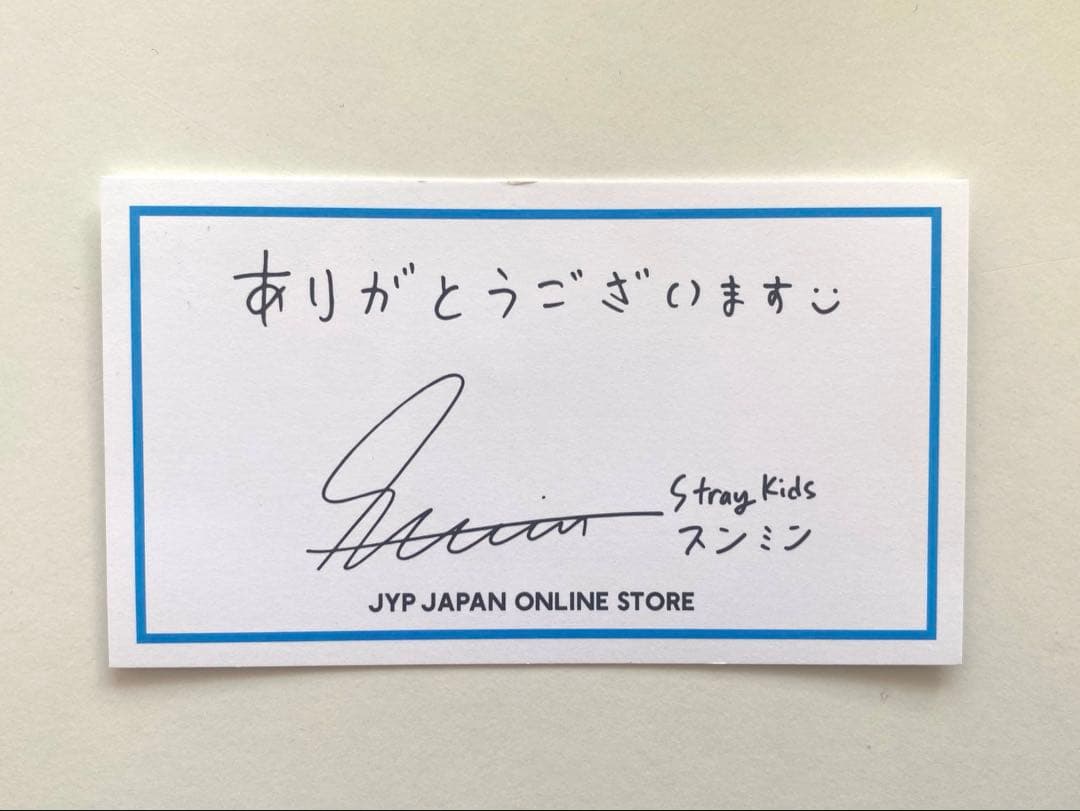 ありがとうございます
Stray Kids
スンミン
JYP JAPAN ONLINE STORE